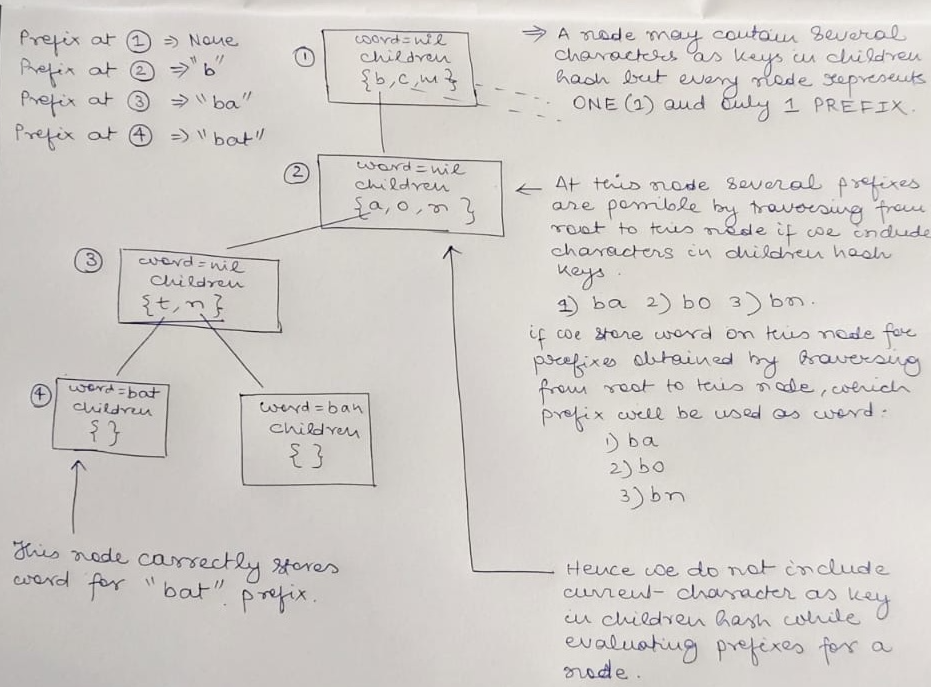 Prefix at ① ⇒ None
Prefix at ② ⇒ "b"
Prefix at ③ ⇒ "ba"
Prefix at ④ ⇒ "bat"
①
word=nil
children
{b,c,m}
⇒ A node may contain several
characters as keys in children
hash but every node represents
ONE (1) and only 1 PREFIX.
②
word=nil
children
{a,o,n}
← At this node several prefixes
are possible by traversing from
root to this node if we include
characters in children hash
keys.
1) ba 2) bo 3) bn.
if we store word on this node for
prefixes obtained by traversing
from root to this node, which
prefix will be used as word:
1) ba
2) bo
3) bn
③
word=nil
children
{t,n}
④
word=bat
children
{ }
word=ban
children
{ }
This node correctly stores
word for "bat" prefix.
Hence we do not include
current character as key
in children hash while
evaluating prefixes for a
node.